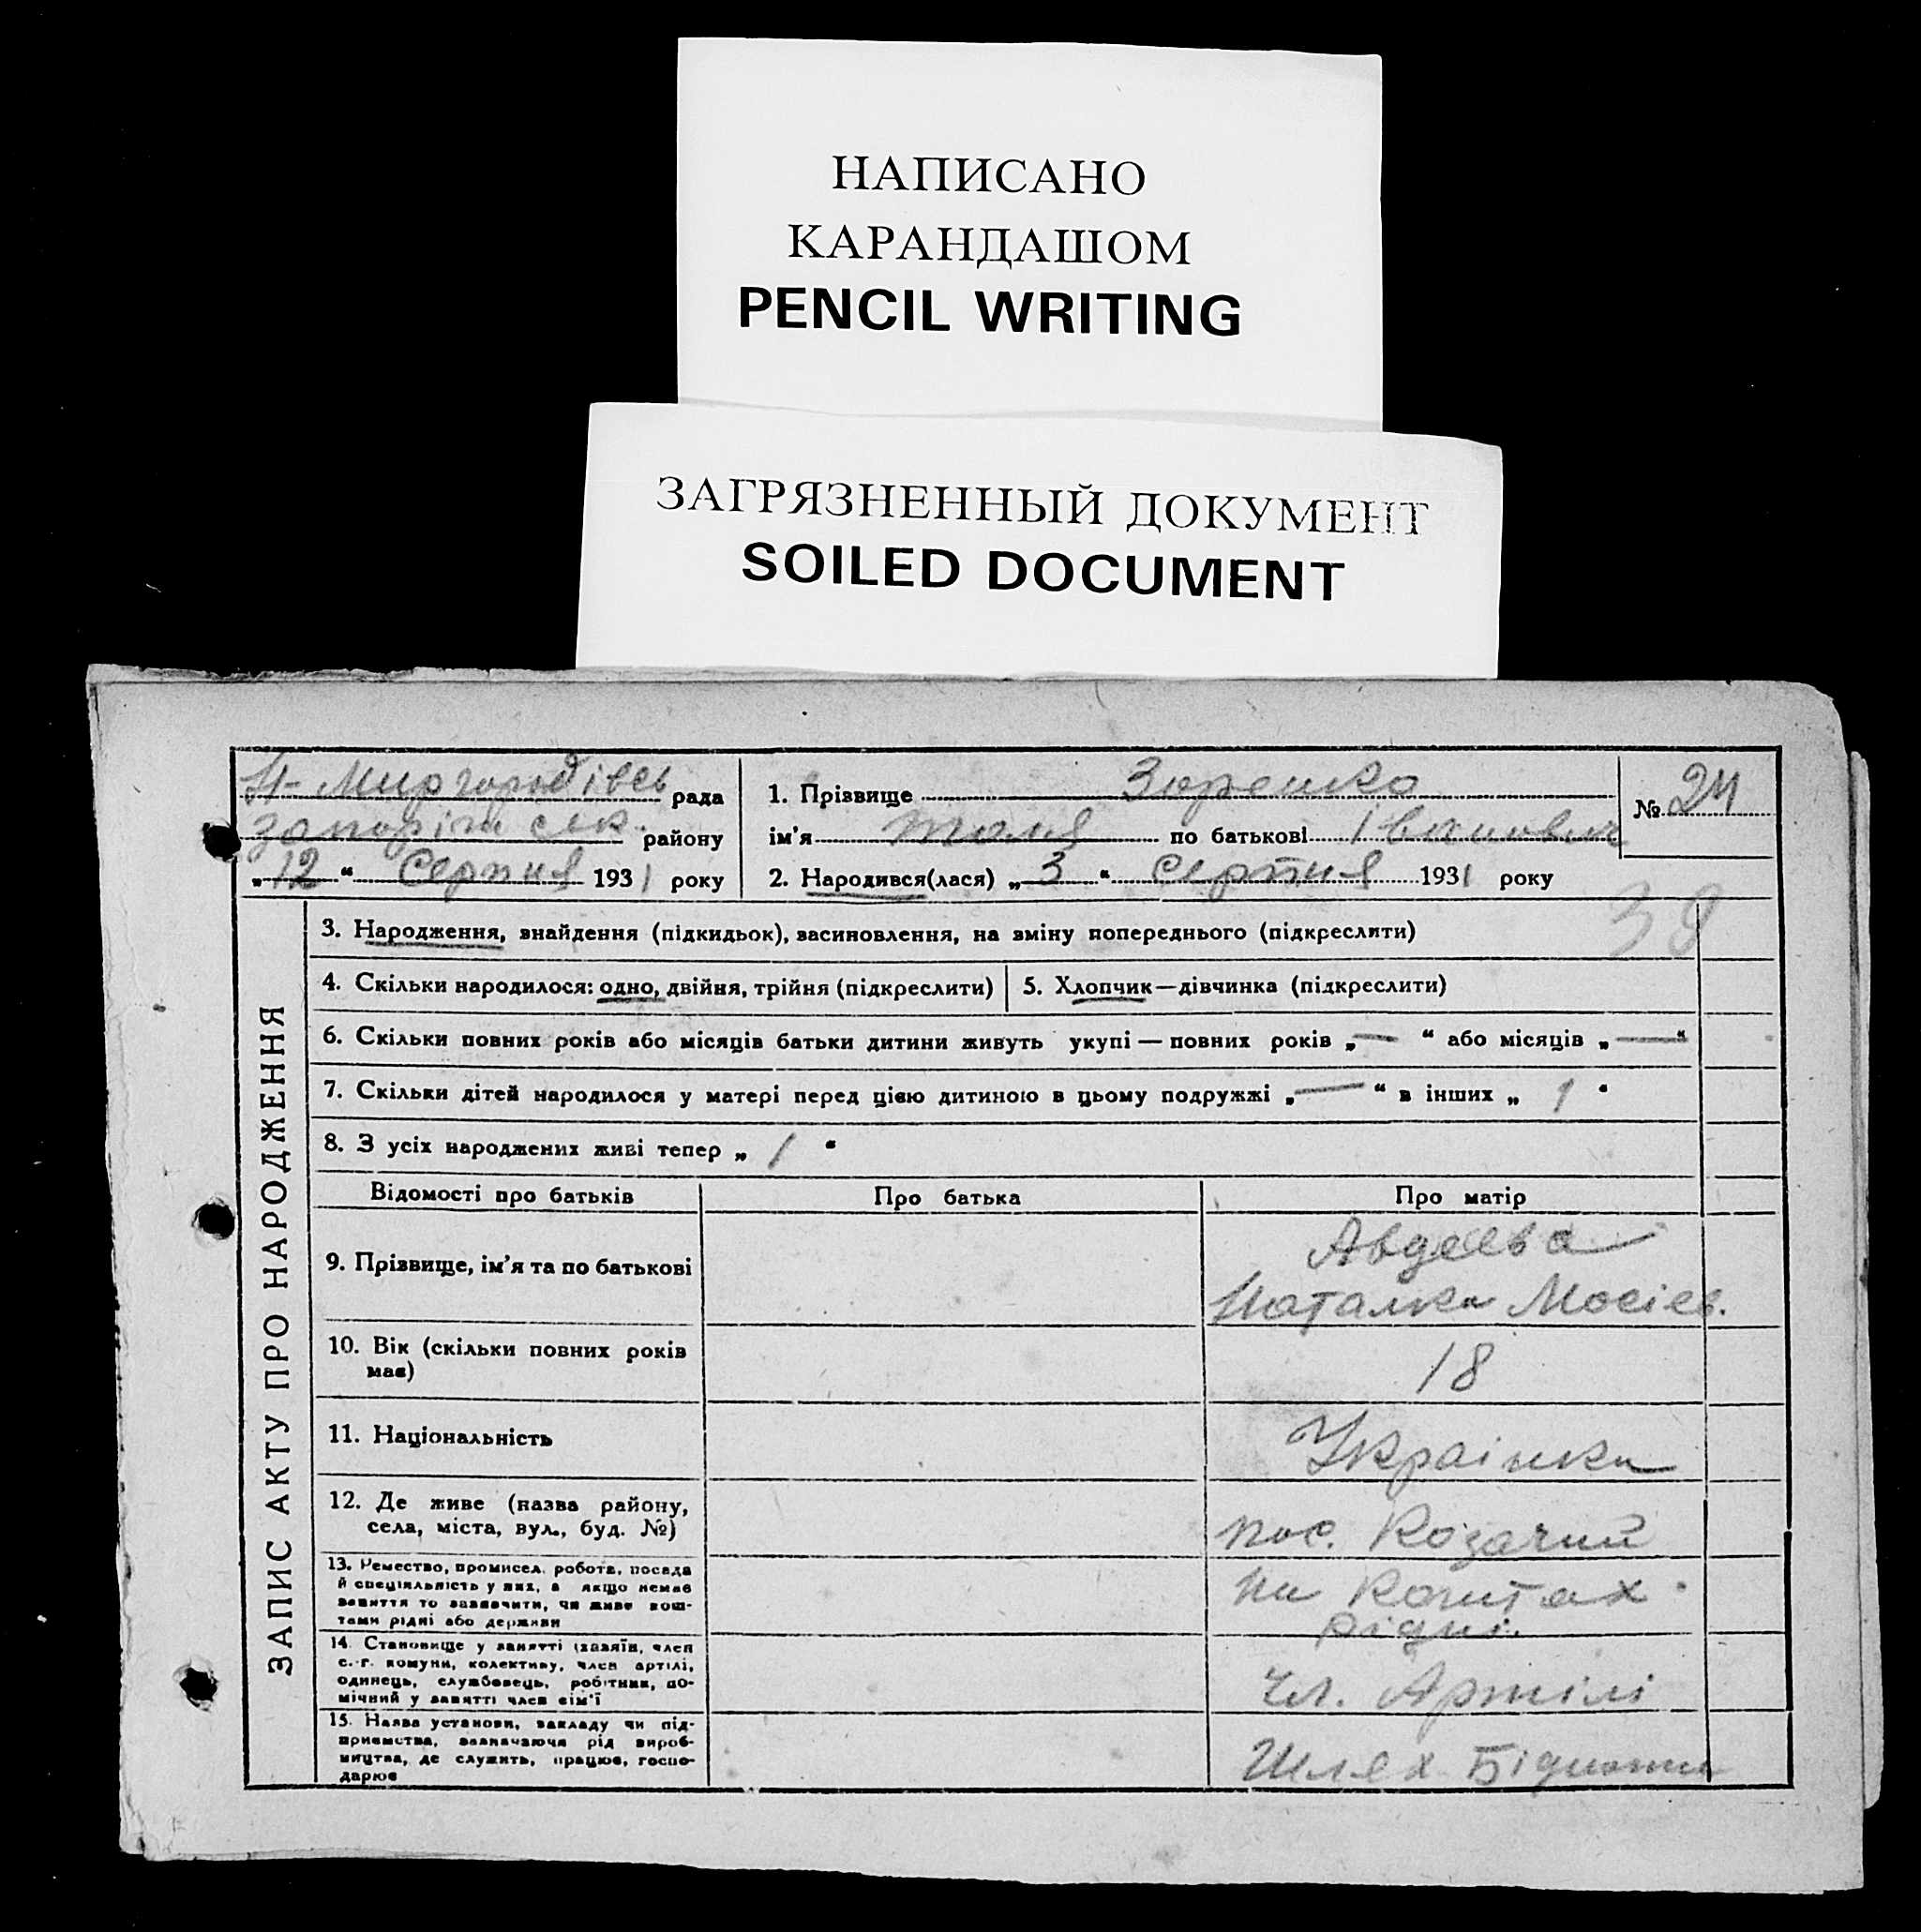 НАПИСАНО
КАРАНДАШОМ
PENCIL WRITING
ЗАГРЯЗНЕННЫЙ ДОКУМЕНТ
SOILED DOCUMENT
Н-Миргородівсь рада
запорізк сек. району
„12“ Серпня 1931 року
1. Прізвище Зоренко
ім'я толя по батькові Іванович
№ 24
2. Народився(лася) „3“ Серпня 1931 року
38
ЗАПИС АКТУ ПРО НАРОДЖЕННЯ
3. Народження, знайдення (підкидьок), засиновлення, на зміну попереднього (підкреслити)
4. Скільки народилося: одно, двійня, трійня (підкреслити) 5. Хлопчик—дівчинка (підкреслити)
6. Скільки повних років або місяців батьки дитини живуть укупі — повних років „—“ або місяців „—“
7. Скільки дітей народилося у матері перед цією дитиною в цьому подружжі „—“ в інших „1“
8. З усіх народжених живі тепер „1“
Відомості про батьків Про батька Про матір
9. Прізвище, ім'я та по батькові
Авдеева
Наталка Мосієв.
10. Вік (скільки повних років
має)
18
11. Національність
Українка
12. Де живе (назва району,
села, міста, вул., буд. №)
пос. Козачий
13. Ремество, промисел, робота, посада
й спеціяльність у них, а якщо немає
заняття то зазначити, чи живе кош-
тами рідні або держави
на коштах
рідні.
14. Становище у занятті (хазяїн, член
с.-г. комуни, колективу, член артілі,
одинець, службовець, робітник, по-
мічний у занятті член сім'ї
чл. Артілі
15. Назва установи, закладу чи під-
приємства, зазначаючи рід вироб-
ництва, де служить, працює, госпо-
дарює
Шлях Бідноти